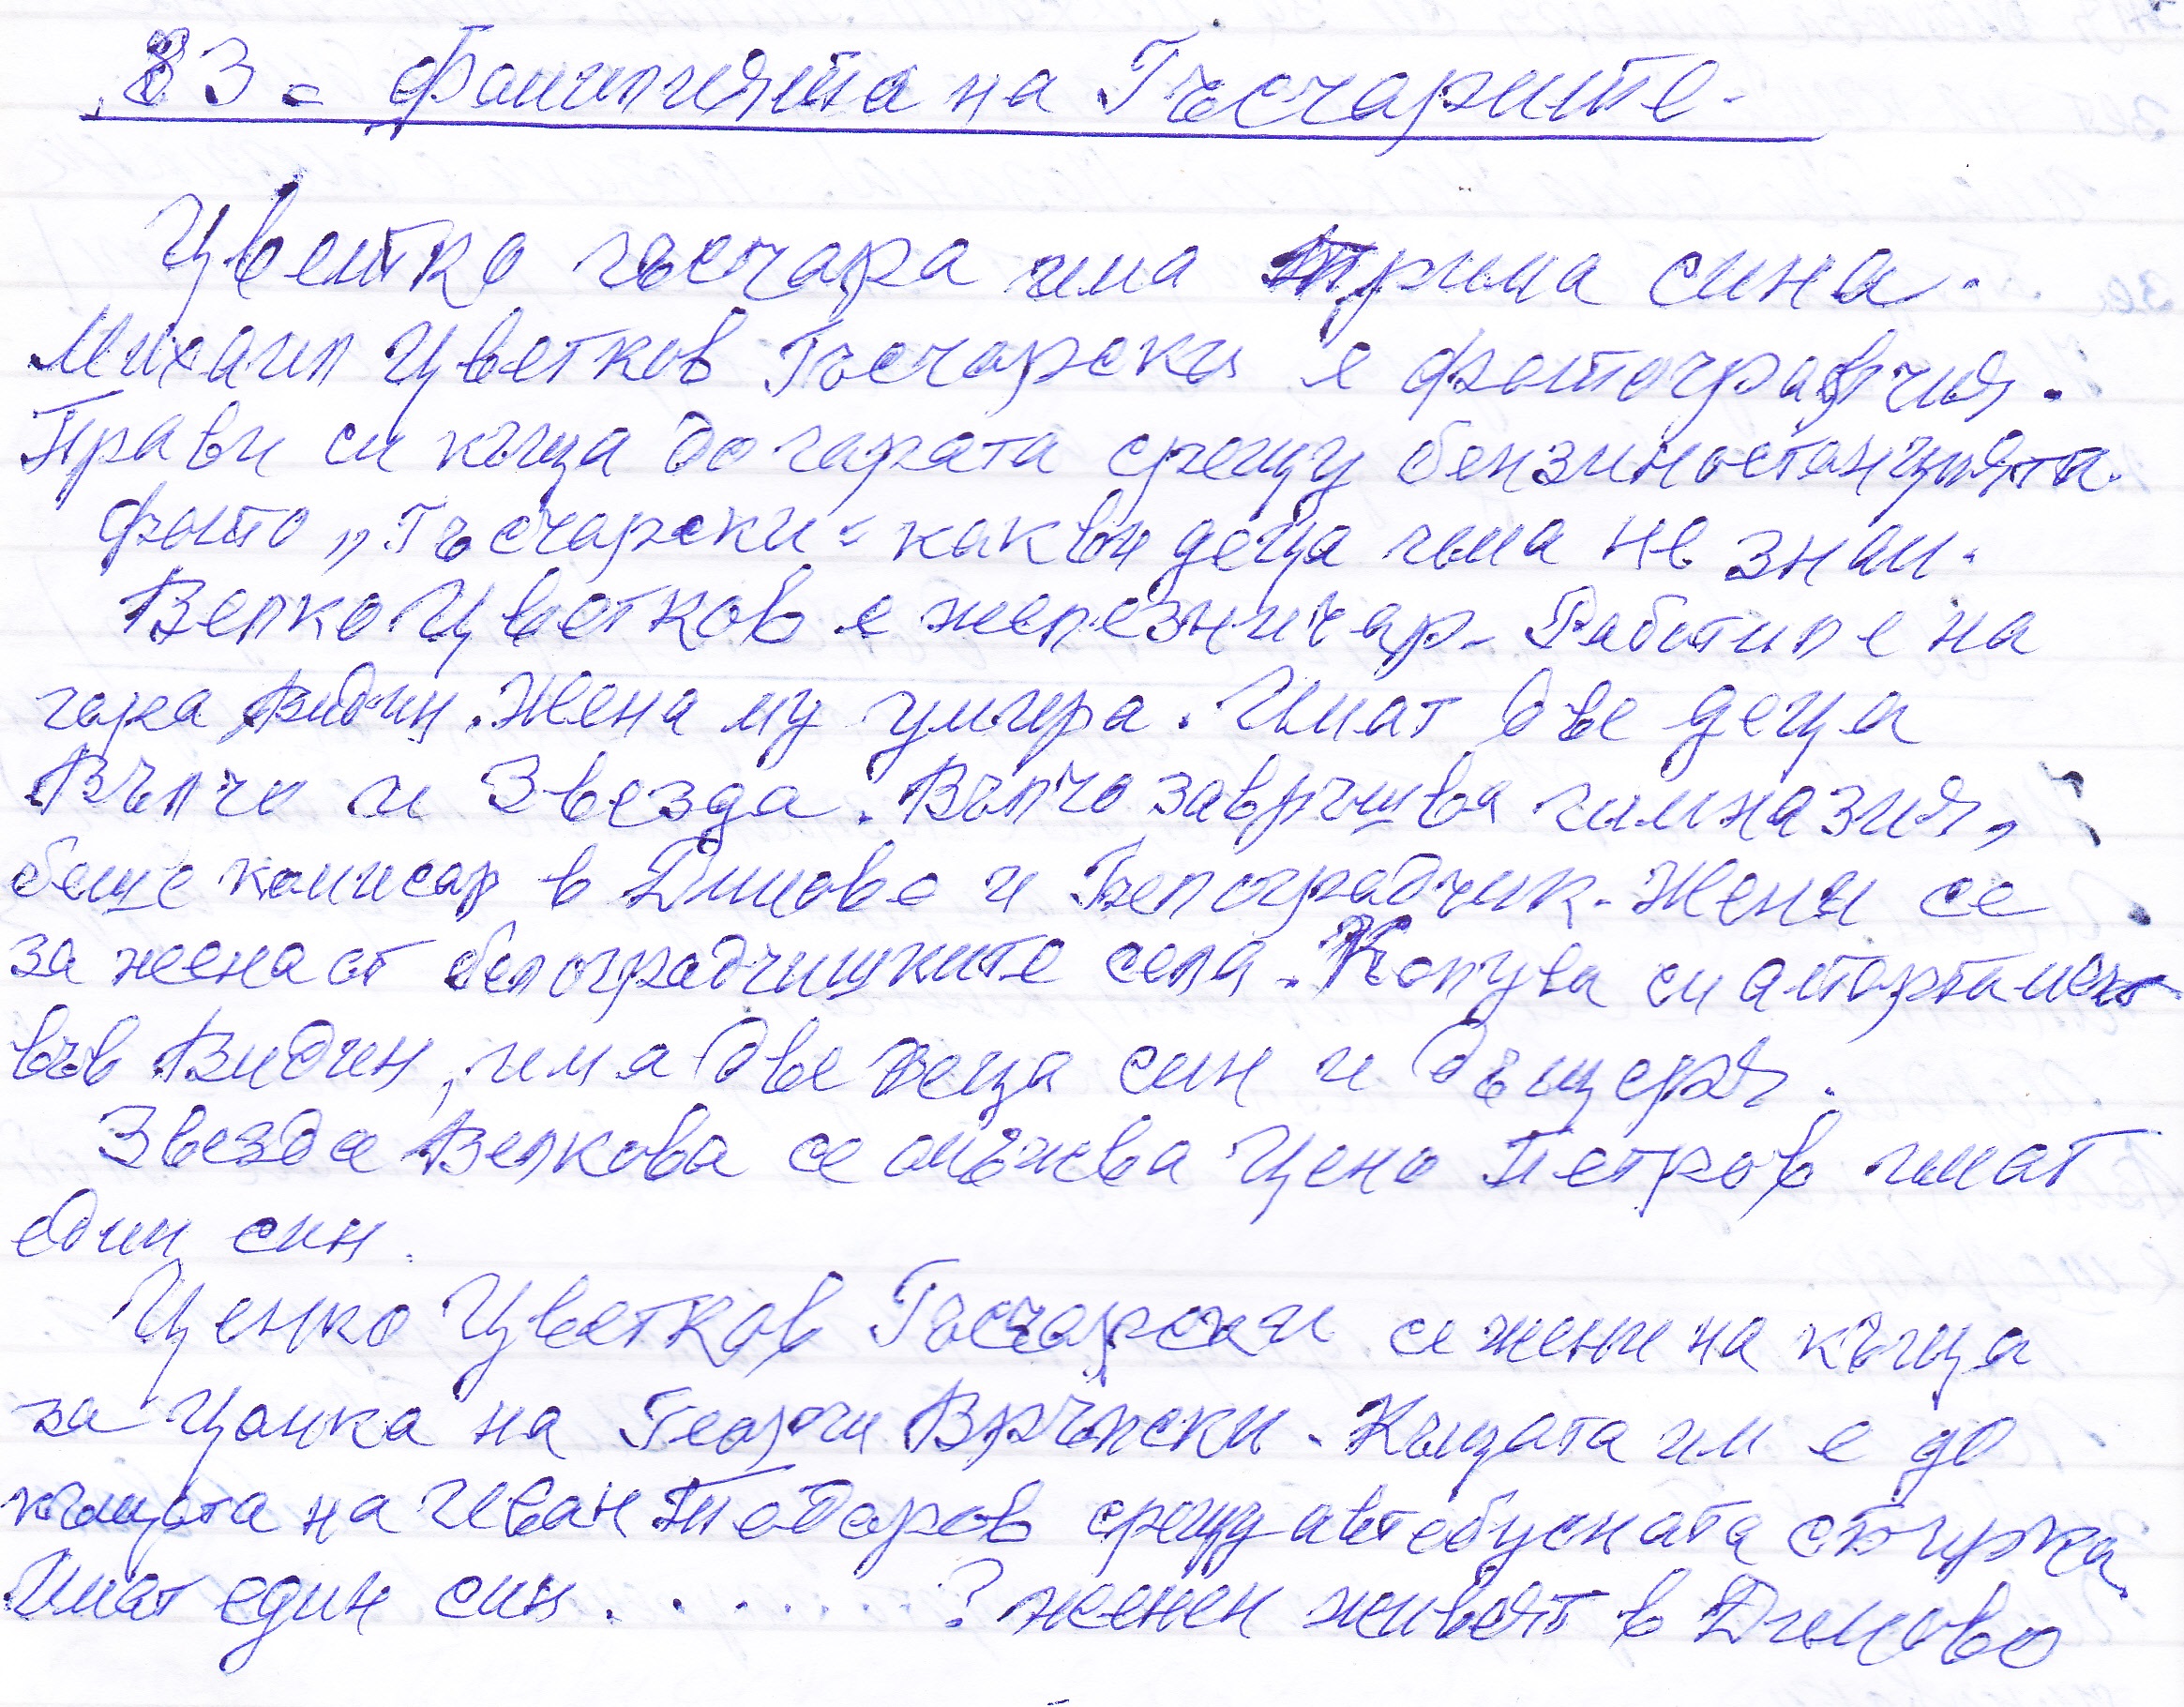 83 - Фамилията на Гъсчарите.
Цветко гъсчара има трима сина.
Михаил Цветков Гъсчарски е фотографчия.
Прави си къща до гарата срещу бензиностанцията.
фото „Гъсчарски" какви деца има не знам.
Велко Цветков е железничар. Работил е на
гара Видин. Жена му умира. Имат две деца
Вълчо и Звезда. Вълчо завършва гимназия,
беше комисар в Димово и Белоградчик. Жени се
за жена от белоградчишките села. Копува си апортамент
във Видин, има две деца син и дъщеря.
Звезда Велкова се омъжва Цено Петров имат
един син.
Ценко Цветков Гъсчарски се жени на къща
за Цонка на Георги Врълски. Къщата им е до
къщата на Иван Тодоров срещу автобусната спирка
Имат един син. . . . . . . . ? женен живеят в Димово